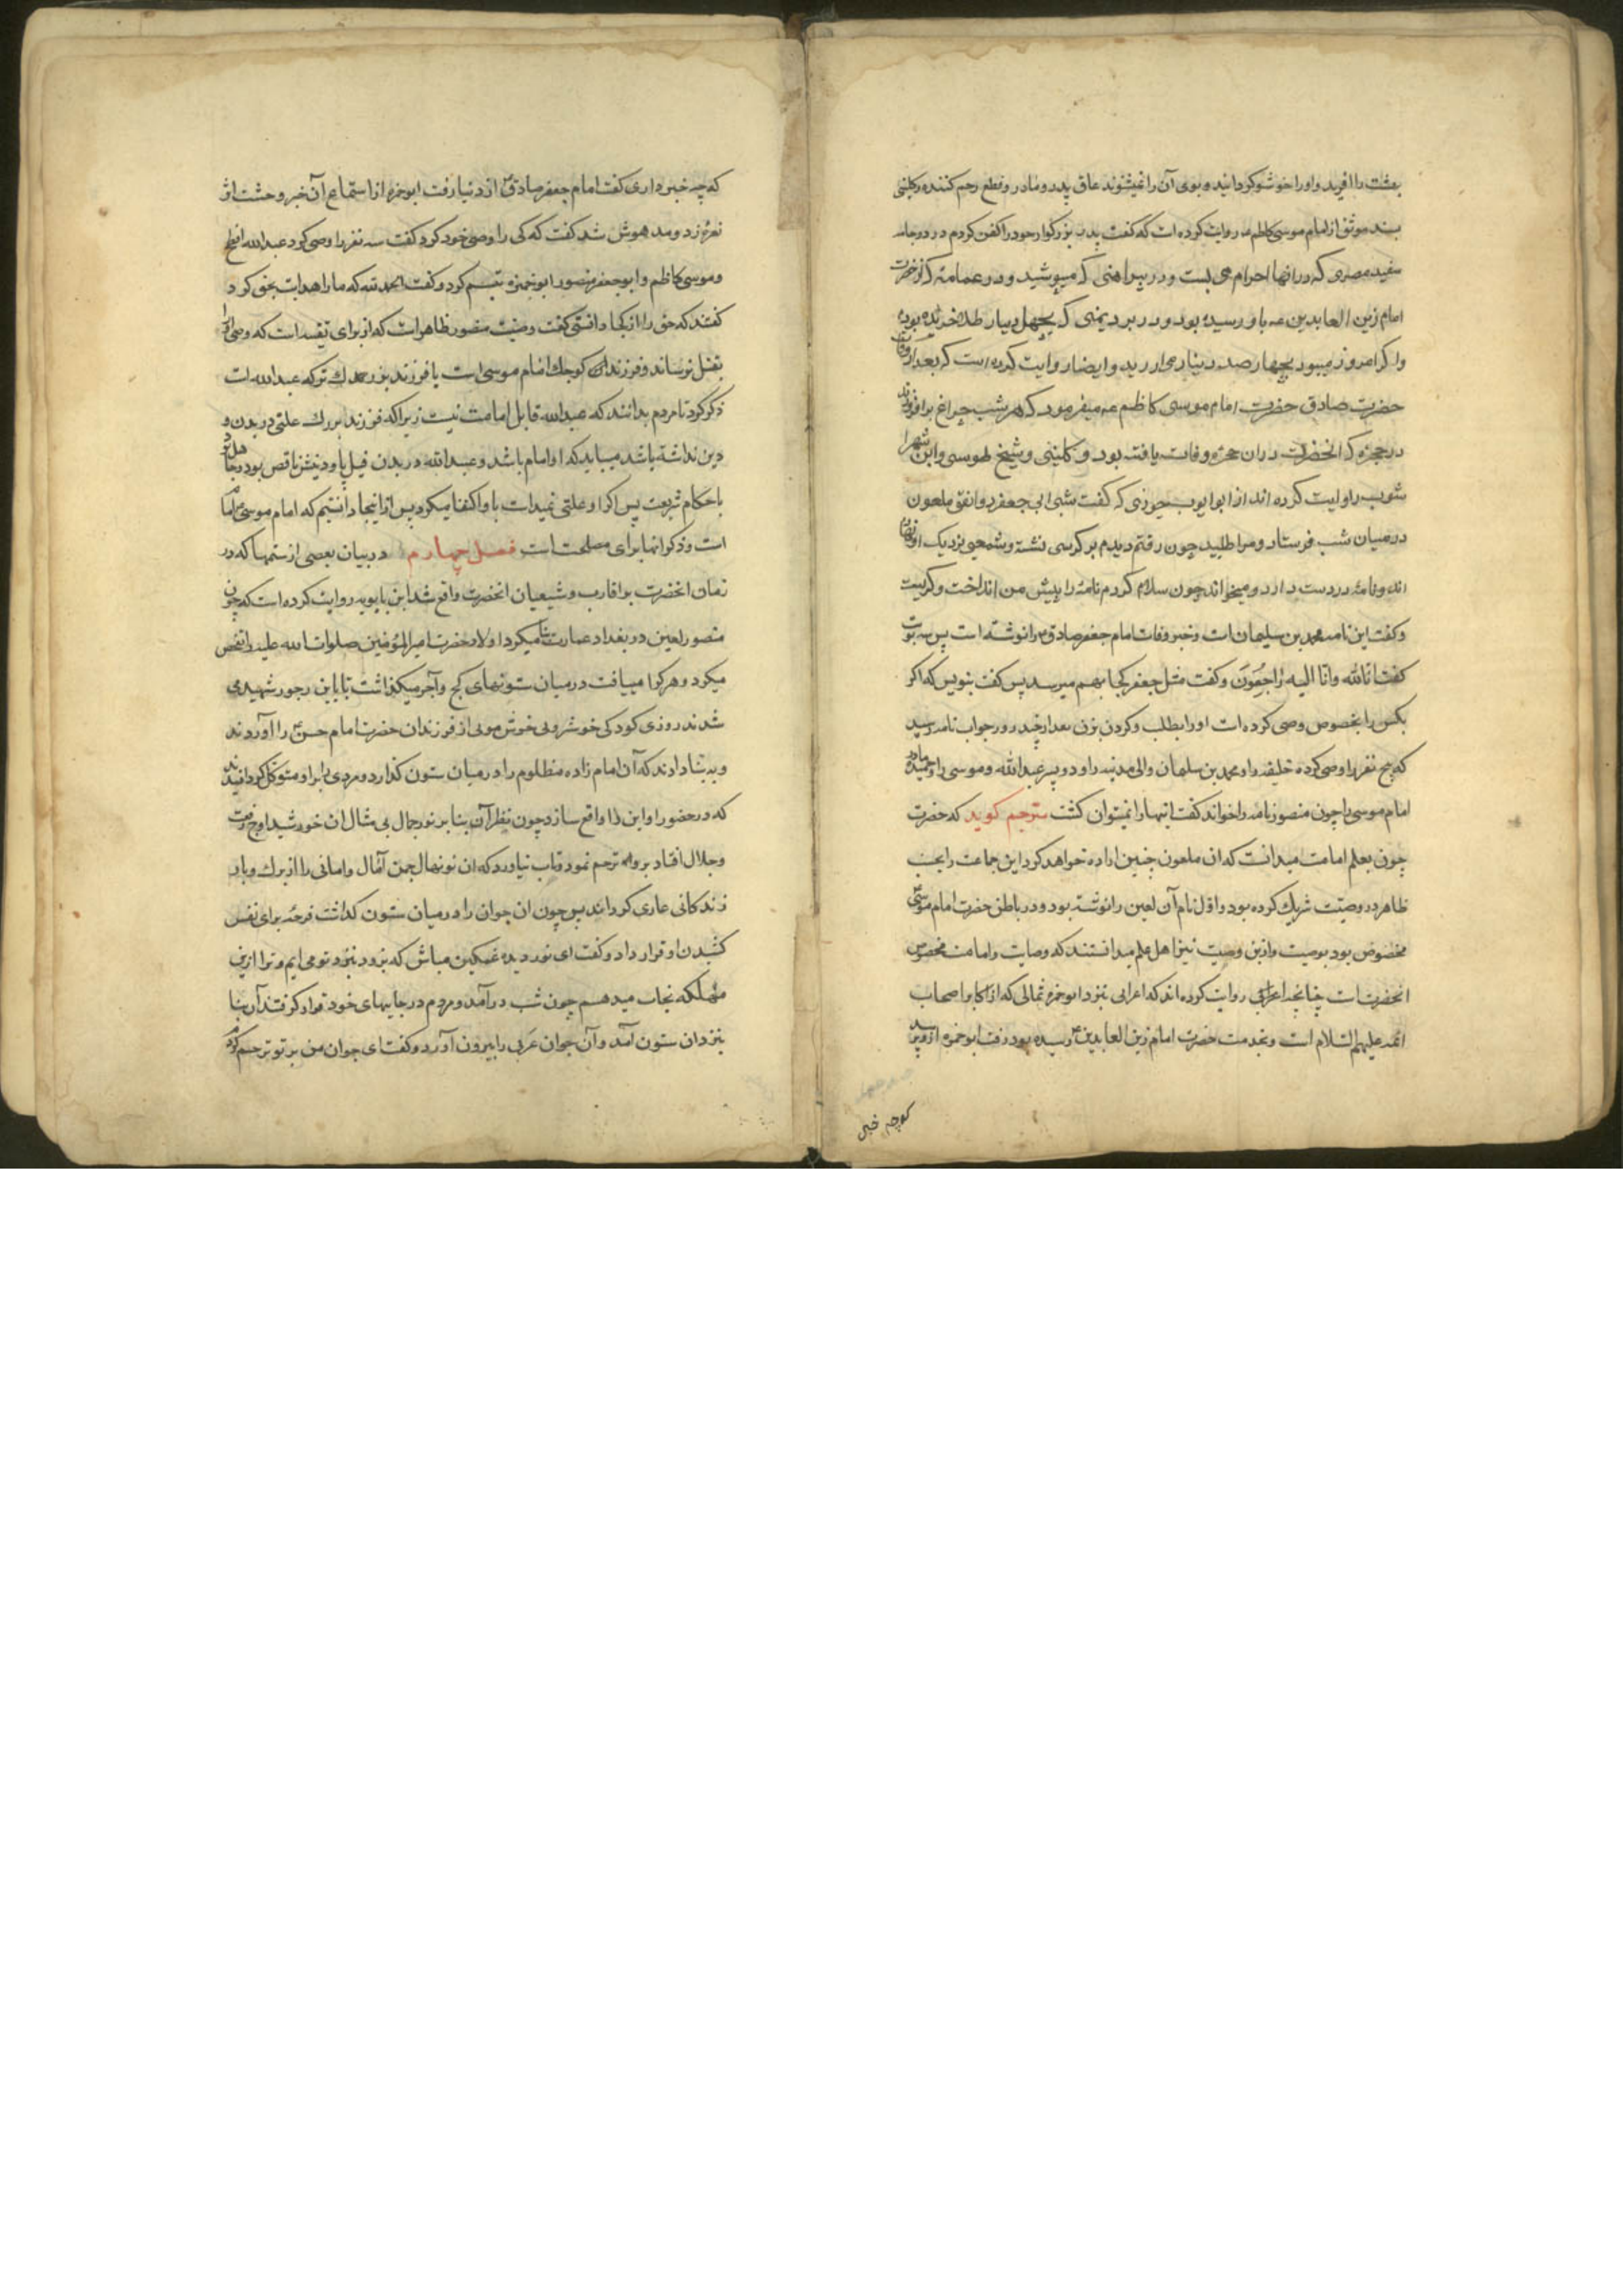 بهشت را افرید و او را خوشبو کردانید و بوی آن را نمیشنوند عاق پدر و مادر و قطع رحم کننده و کلینی
بسند موثق از امام موسی کاظم عه روایت کرده است که کفت پدر بزرکوار خود را کفن کردم در دو جامه
سفید مصری که در انها احرام می بست و در پیراهنی که میپوشید و در عمامهٔ که از حضرت
امام زین العابدین عه باو رسیده بود و در برد یمنی که بچهل دینار طلا خریده بود
و اکر امروز میبود بچهار صد دینار می ارزید و ایضا روایت کرده است که بعد از وفات
حضرت صادق حضرت امام موسی کاظم عه میفرمود که هر شب چراغ برافروزند
در حجرهٔ که انحضرت در ان حجره وفات یافته بود و کلینی و شیخ طوسی و ابن شهر
شوب روایت کرده اند از ابو ایوب جوزی که کفت شبی ابی جعفر دوانقی ملعون
در میان شب فرستاد و مرا طلبید چون رفتم دیدم بر کرسی نشسته و شمعی نزدیک او نهاده
اند و نامهٔ در دست دارد و میخواند چون سلام کردم نامه را پیش من انداخت و کریست
و کفت این نامه محمد بن سلیمان است و خبر وفات امام جعفر صادق را نوشته است پس سه نوبت
کفت انا لله و انا الیه راجعون و کفت مثل جعفر کجا بهم میرسد پس کفت بنویس که اکر
یکس را بخصوص وصی کرده است او را بطلب و کردن بزن بعد از چند روز جواب نامه رسید
که پنج نفر را وصی کرده خلیفه را و محمد بن سلیمان والی مدینه را و دو پسر عبد الله و موسی را و حمیده مادر
امام موسی را چون منصور نامه را خواند کفت اینها را نمیتوان کشت مترجم کوید که حضرت
چون بعلم امامت میدانست که ان ملعون چنین اراده خواهد کرد این جماعت را بحسب
ظاهر در وصیت شریک کرده بود و اول نام آن لعین را نوشته بود و در باطن حضرت امام موسی
مخصوص بود بوصیت و ازین وصیت نیز اهل علم میدانستند که وصایت و امامت مخصوص
انحضرت است چنانچه روایت کرده اند که اعرابی بنزد ابو حمزه ثمالی که از اکابر اصحاب
ائمه علیهم السلام است و بخدمت حضرت امام زین العابدین رسیده بود رفت ابو حمزه از او پرسید
که چه خبر
که چه خبر داری کفت امام جعفر صادق از دنیا رفت ابو حمزه از استماع آن خبر وحشت اثر
نعرهٔ زد و مدهوش شد کفت که کی را وصی خود کرد کفت سه نفر را وصی کرد عبد الله افطح
و موسی کاظم و ابو جعفر منصور ابو حمزه تبسم کرد و کفت الحمد لله که ما را هدایت بحق کرد
کفتند که حق را از کجا دانستی کفت وصیت منصور ظاهر است که از برای تقیه است که وصی او را
بقتل نرساند و فرزند کوچک امام موسی است با فرزند بزرک که عبد الله است
ذکر کرد تا مردم بدانند که عبد الله قابل امامت نیست زیرا که فرزند بزرک علتی در بدن و
دین نداشته باشد میباید که او امام باشد و عبد الله در بدن فیل پا و دینش ناقص بود و جاهل بود
باحکام شریعت پس اکر او علتی نمیداشت باو اکتفا میکرد پس از اینجا دانستیم که امام موسی امام
است و ذکر انها برای مصلحت است فصل چهارم در بیان بعضی از ستمها که در
زمان انحضرت بر اقارب و شیعیان انحضرت واقع شد ابن بابویه روایت کرده است که چون
منصور لعین در بغداد عمارت بنا میکرد اولاد حضرت امیر المؤمنین صلوات الله علیه را تفحص
میکرد و هر که را مییافت در میان ستونهای کج و آجر میکذاشت تا باین رجور شهید می
شدند روزی کودکی خوش روی خوش موی از فرزندان حضرت امام حسن را آوردند
و به بنا دادند که آن امام زاده مظلوم را در میان ستون کذارد و مردی را بر او متوکل کردانیدند
که در حضور او این را واقع سازد چون نظر آن بنا بر نور جمال بی مثال ان خورشید اوج رفعت
و جلال افتاد بر وی ترحم نمود و تاب نیاورد که ان نونهال چمن آمال و امانی را از برک و بار
زندکانی عاری کرداند پس چون ان جوان را در میان ستون کذاشت فرجهٔ برای نفس
کشیدن او قرار داد و کفت ای نور دیده غمکین مباش که بزودی نزد تو می ایم و ترا ازین
مهلکه نجات میدهم چون شب درآمد و مردم در جایهای خود قرار کرفتند آن بنا
بنزد ان ستون آمد و آن جوان عربی را بیرون آورد و کفت ای جوان من بر تو ترحم کردم